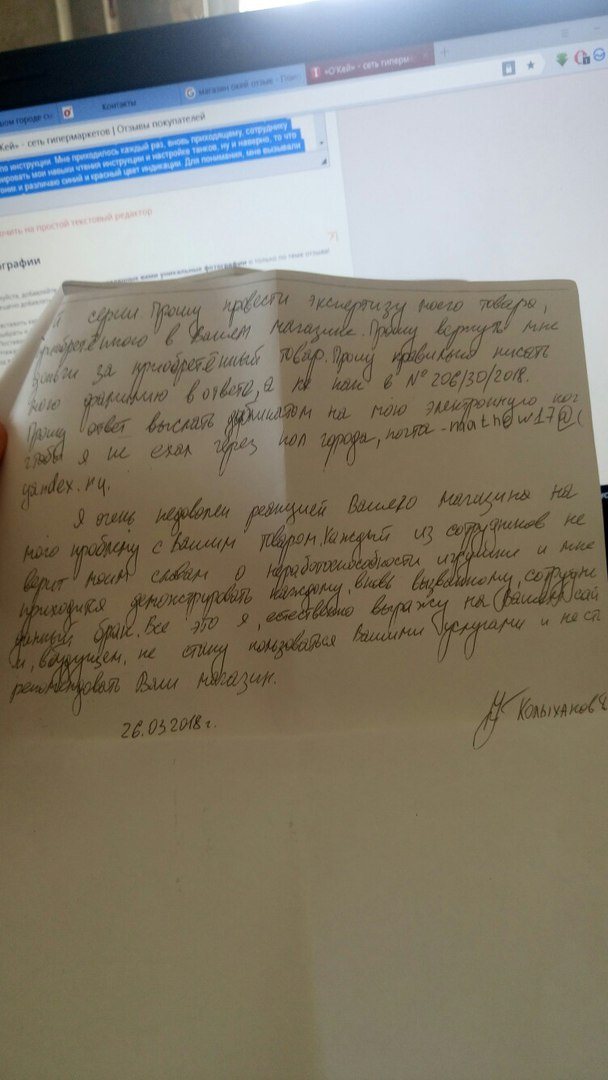 Контакты
магазин окей отзые - Пои
«О'Кей» - сеть гиперм
Кей» - сеть гипермаркетов | Отзывы покупателей
по инструкции. Мне приходилось каждый раз, вновь приходящему, сотруднику
мои навыки чтения инструкции и настройке танков, ну и наверно, то что
и различаю синий и красный цвет индикации. Для понимания, мне вызывали
на простой текстовый редактор
ографии
уникальные фотографии и только по теме отзыва
й серии Прошу провести экспертизу моего товара,
приобретённого в Вашем магазине. Прошу вернуть мне
деньги за приобретённый товар. Прошу правильно писать
мою фамилию в ответе, а не как в № 206/30/2018.
Прошу ответ выслать дубликатом на мою электронную
чтобы я не ехал через пол города, почта - mathew17@(
yandex.ru.
Я очень недоволен реакцией Вашего магазина на
мою проблему с Вашим товаром. Каждый из сотрудников не
верит моим словам о неработоспособности изделия и мне
приходится демонстрировать каждому, вновь вызванному, сотрудни
данный брак. Все это я, естественно выражу на (Вашем) сай
и, в будущем, не стану пользоваться Вашими услугами и не ст
рекомендовать Ваш магазин.
26.03.2018г.
Колыханов